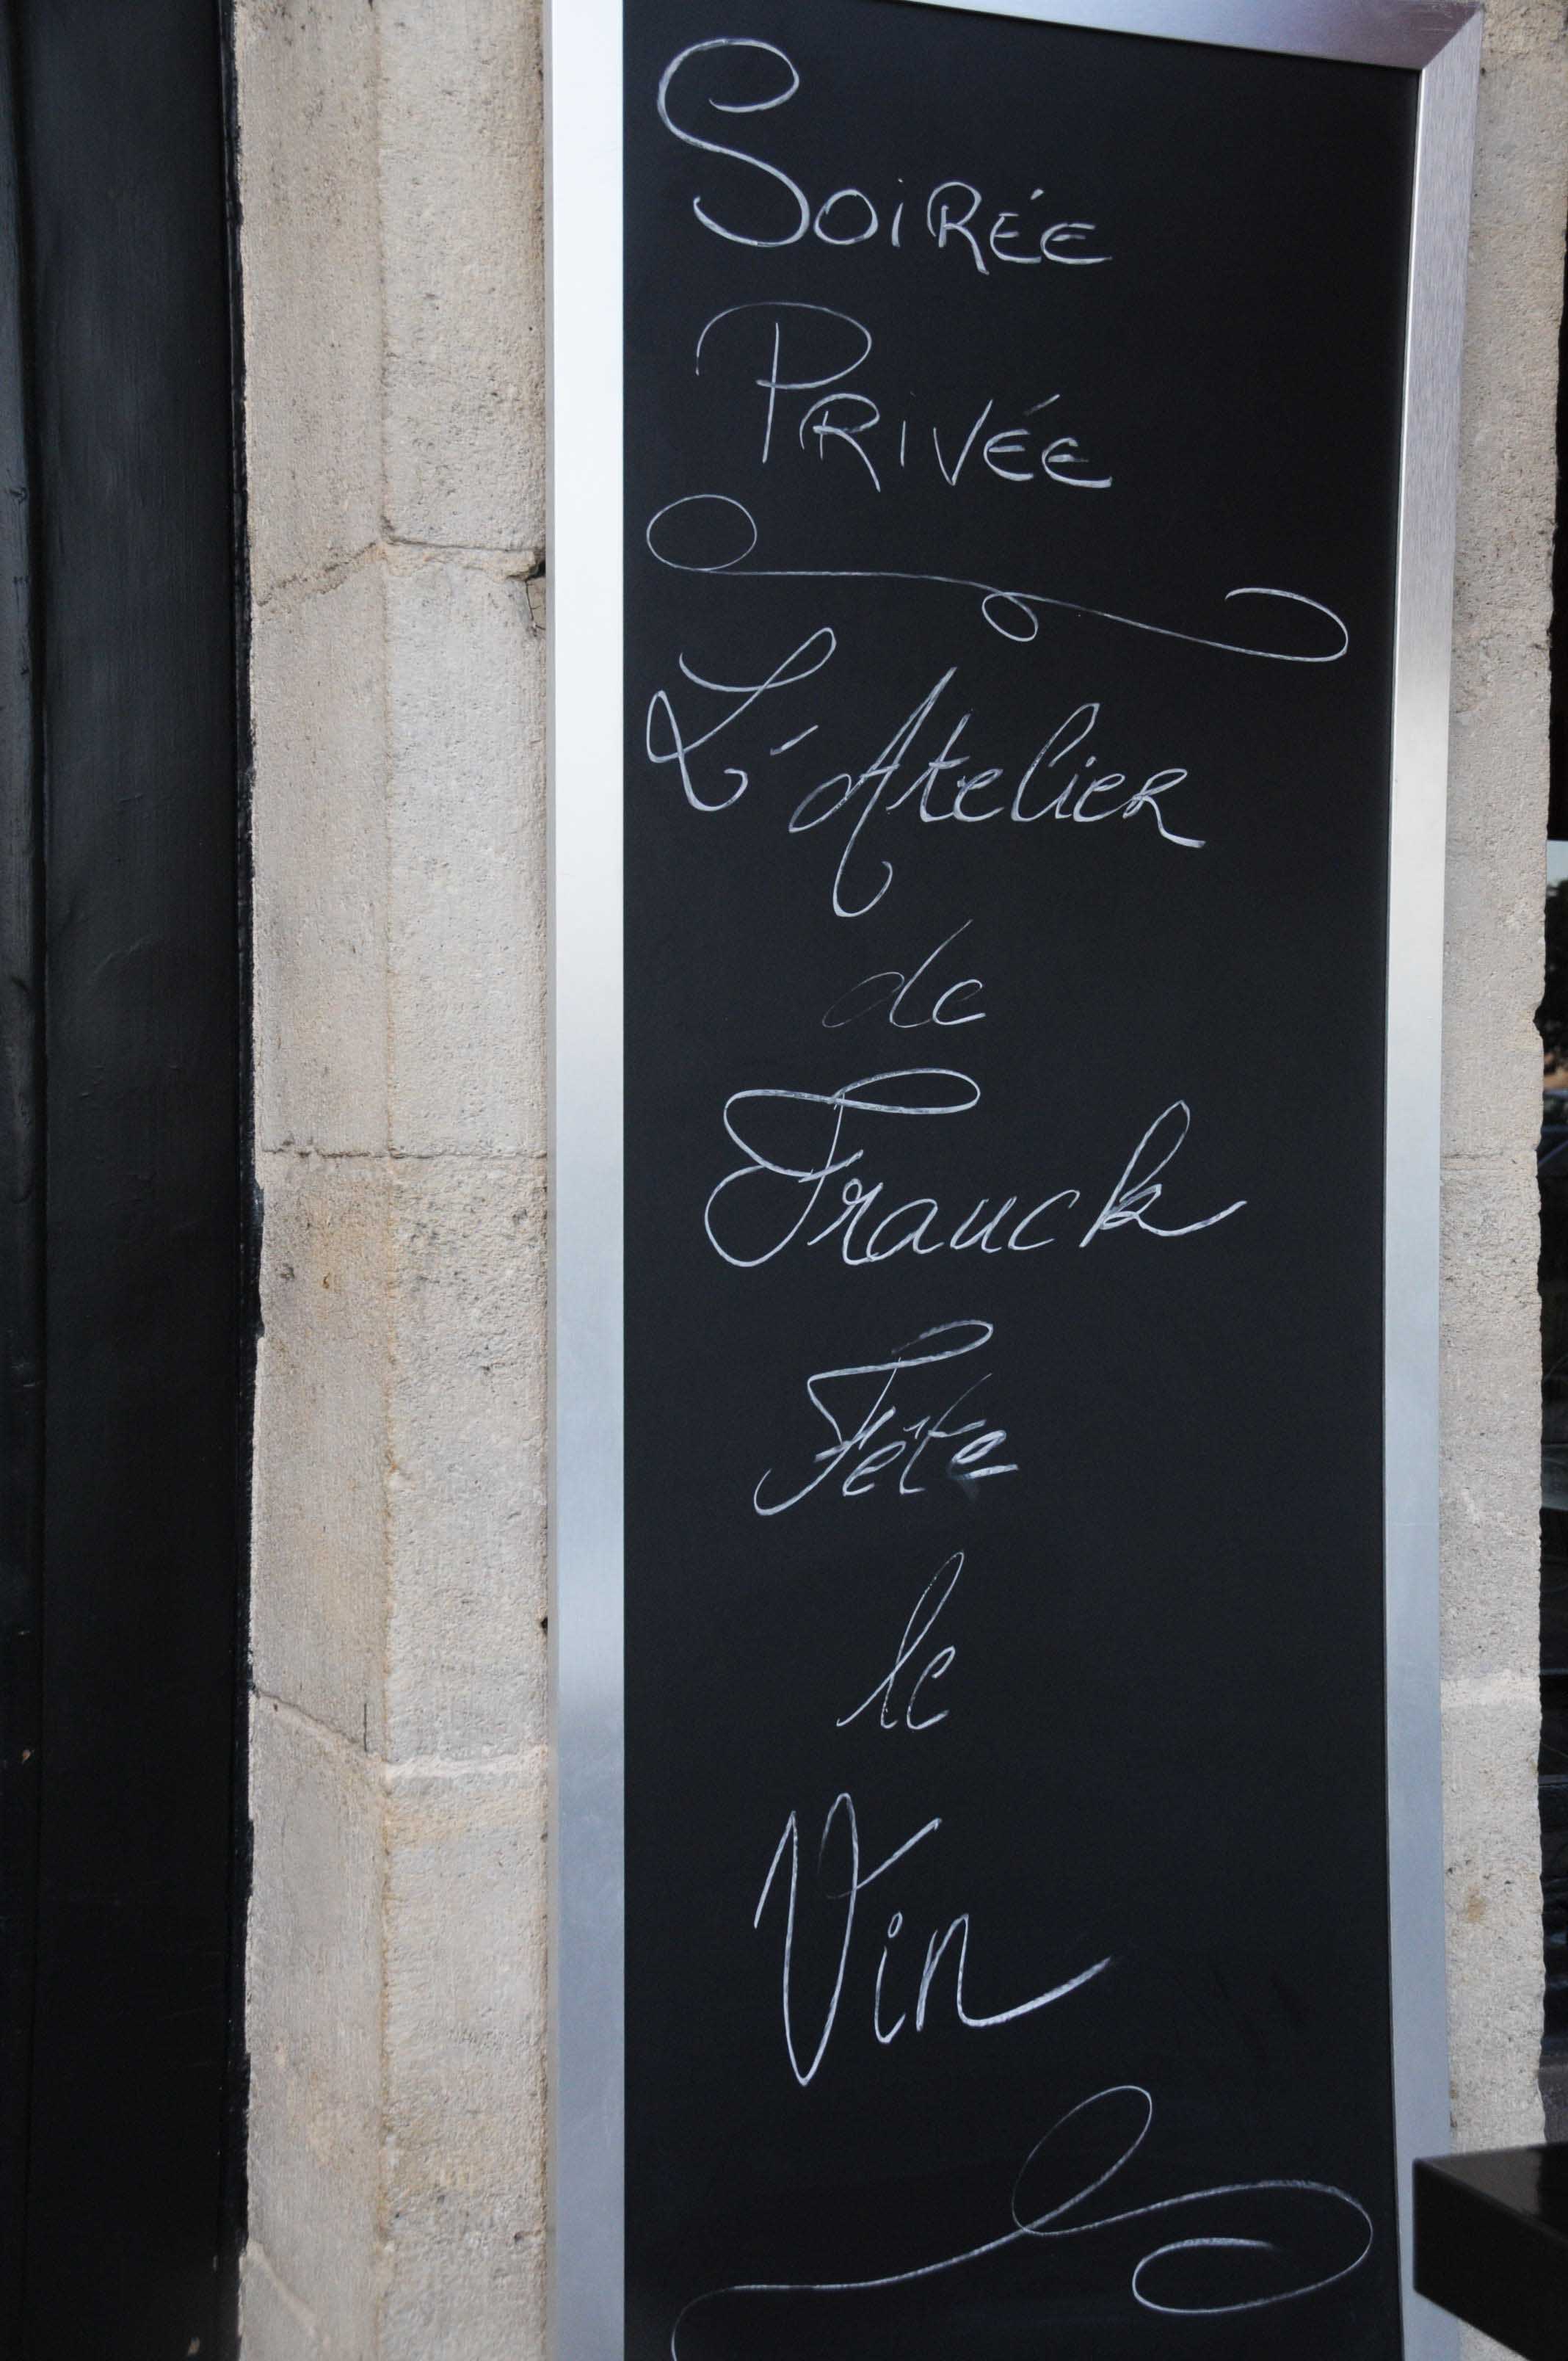 Soirée
Privée
L'Atelier
de
Franck
Fête
le
Vin